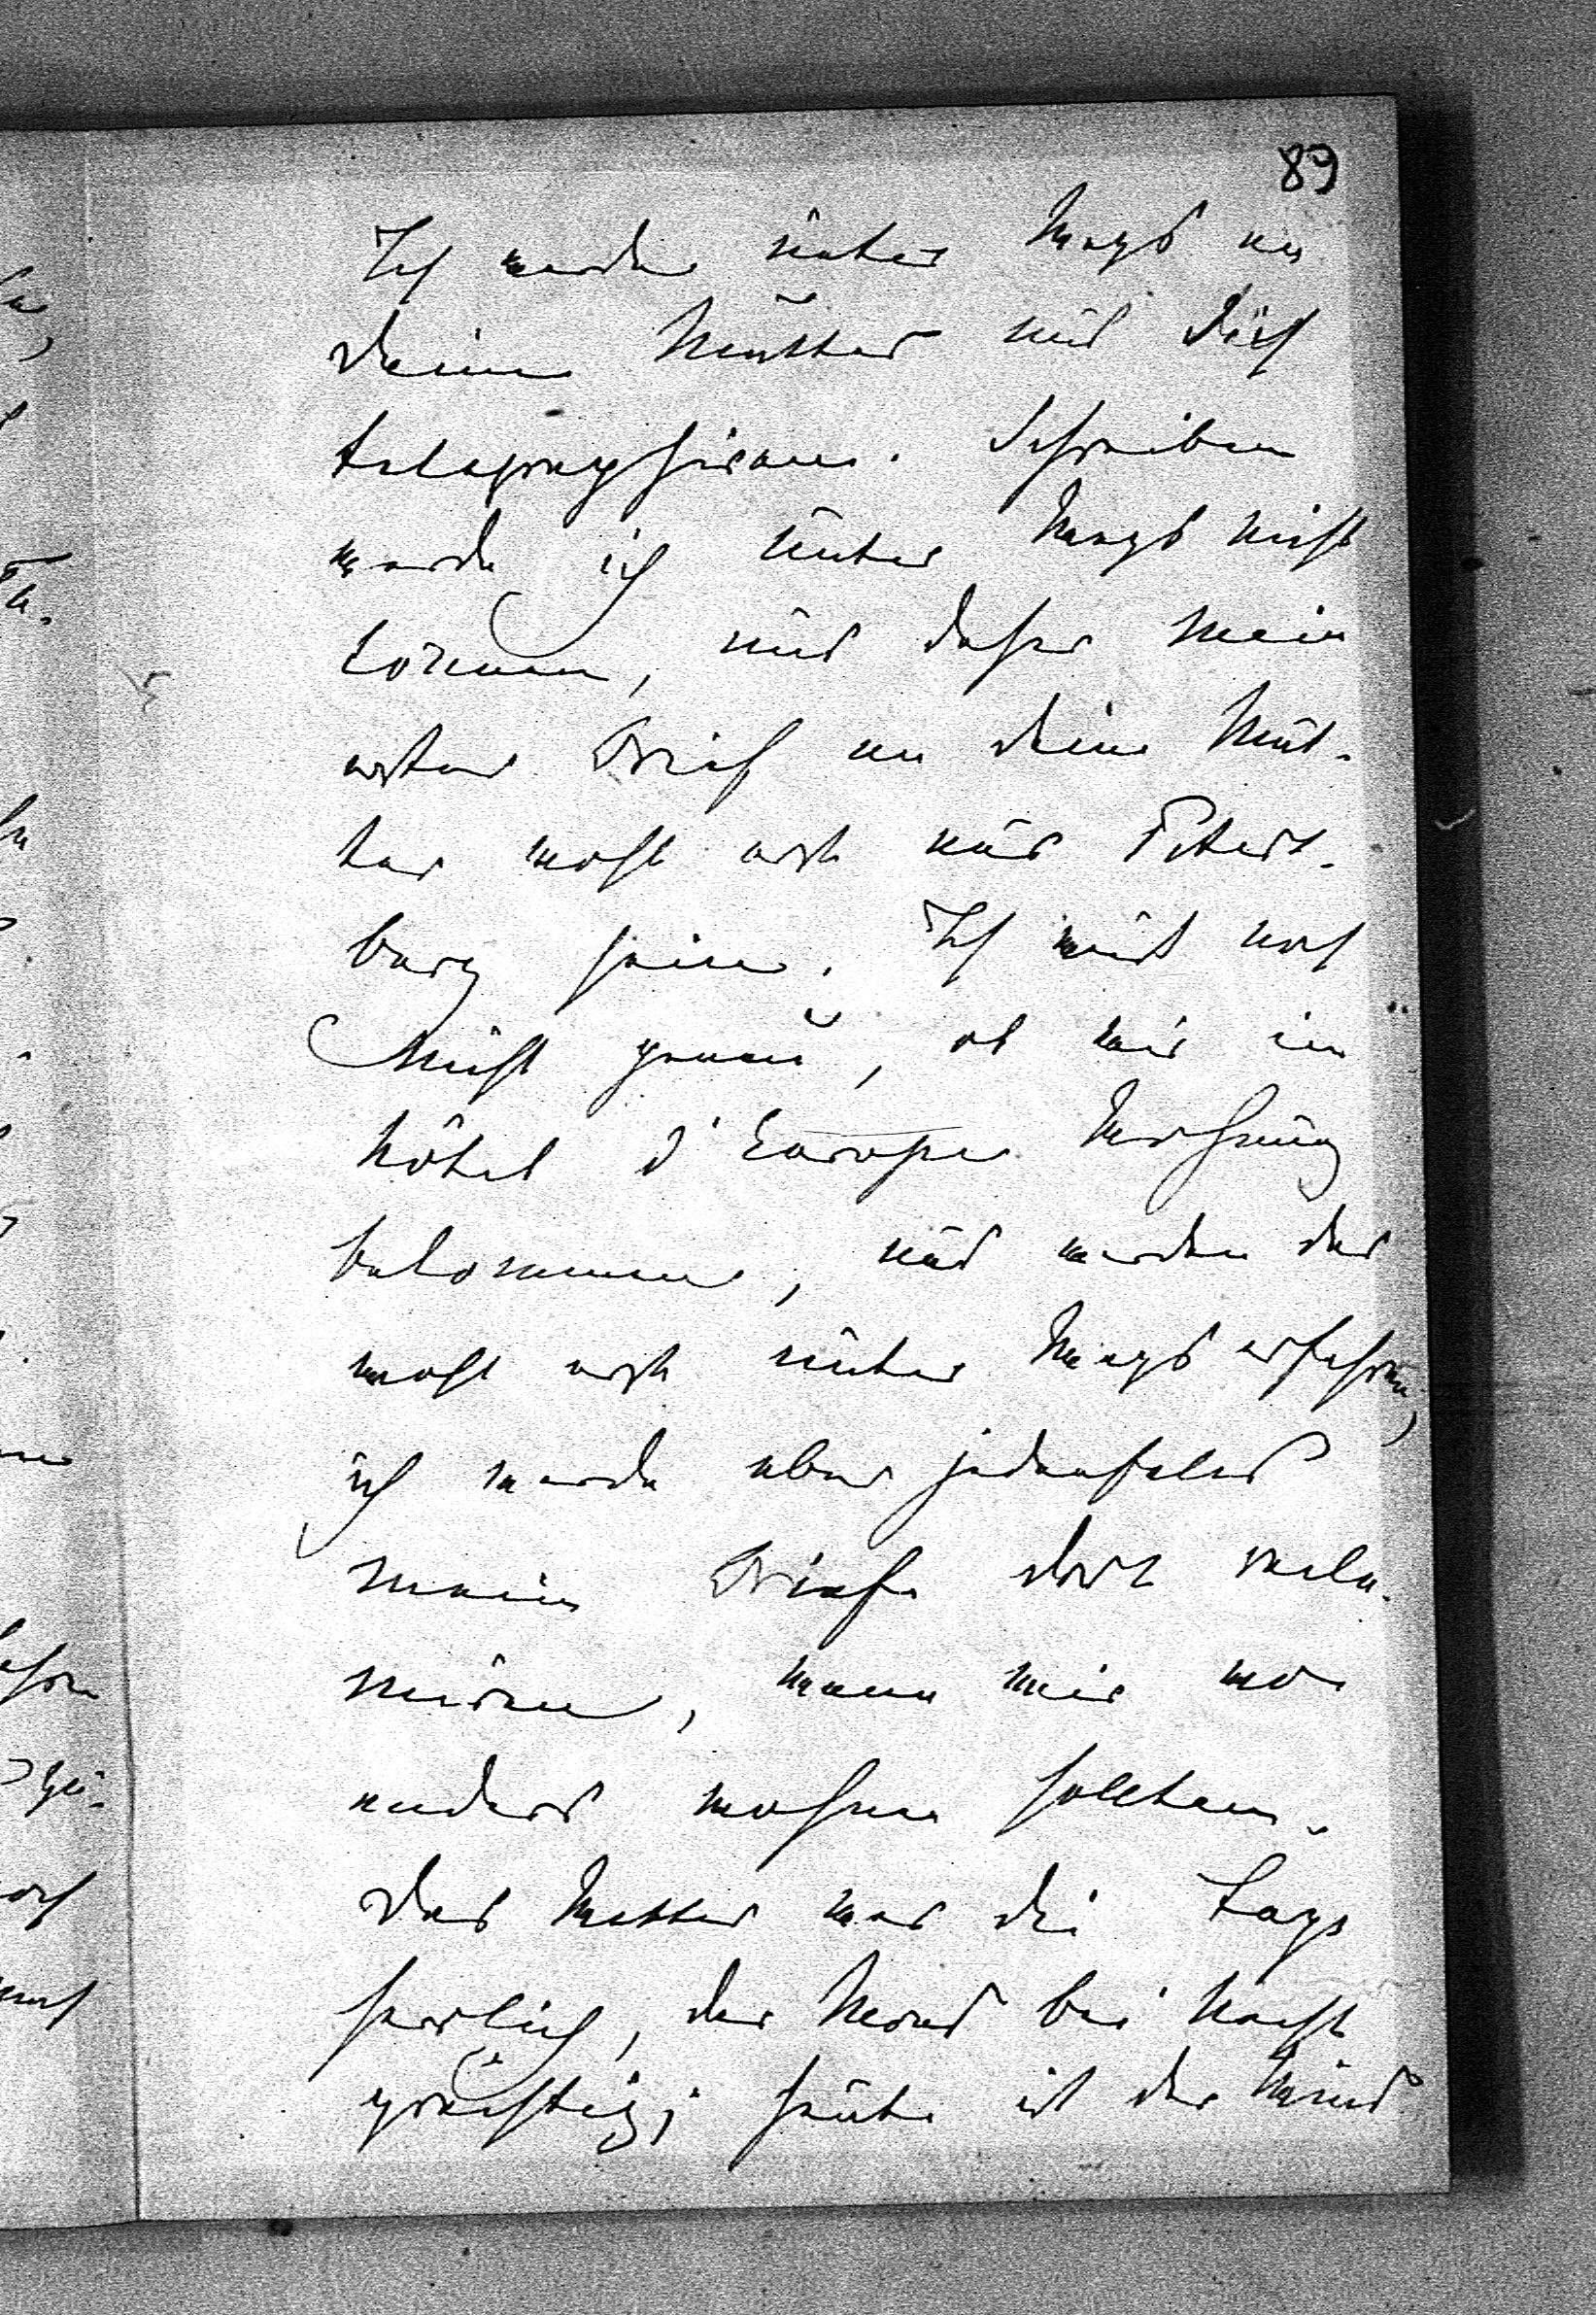 89
Ich werde unter Wegs an
Deine Mutter und Dich
telegraphieren. Schreiben
werde ich unter Wegs nicht
können, und daher mein
erster Brief an Deine Mut-
ter wohl erst aus Peters-
burg sein. Ich weiß noch
nicht genau, ob wir im
Hôtel d'Europe Wohnung
bekommen, und werden das
wohl erst unter Wegs erfahren,
ich werde aber jedenfalls
meine Briefe dort recla-
miren, wenn wir wo
anders wohnen sollten.
Das Wetter war die Tage
herrlich, der Mond bei Nacht
prächtig; heute ist der Wind